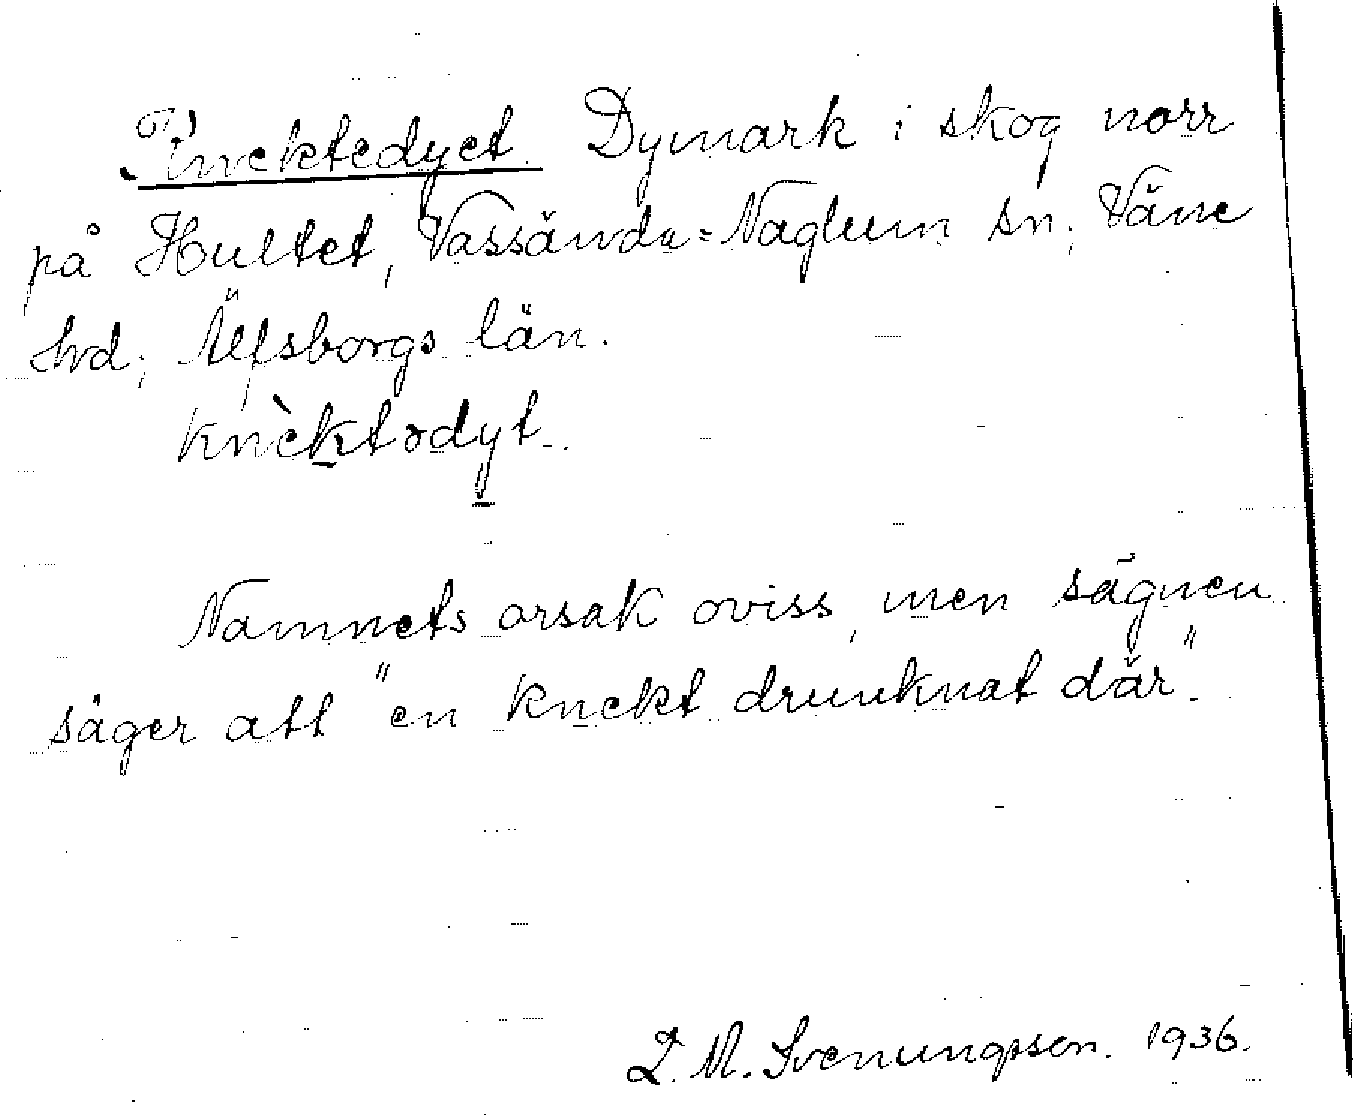 Knecktedyet. Dymark i skog norr
på Hultet, Vassända=Naglum sn, Väne
hrd, Älfsborgs län.
knèktədyt.
Namnets orsak oviss, men sägnen
säger att "en knekt drunknat där".
L. M. Svenungsson. 1936.